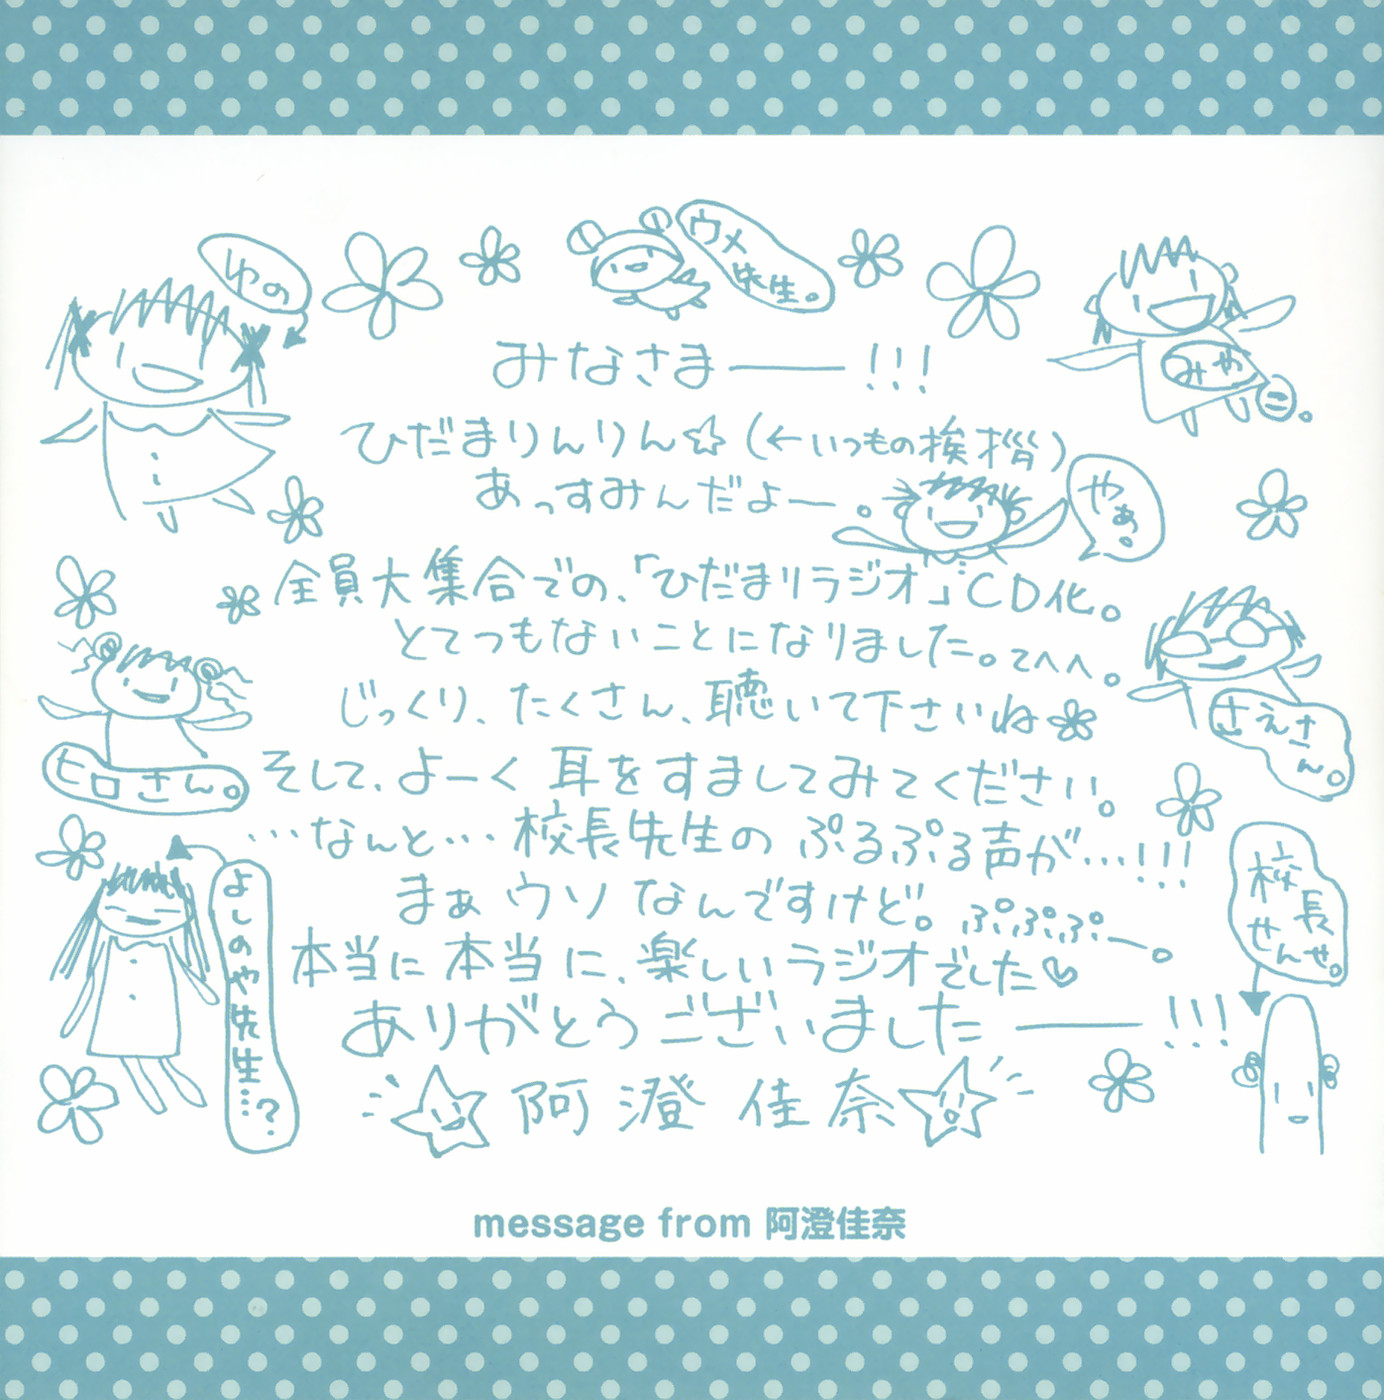 ゆの
ウメ
先生。
みや
こ。
みなさまー!!!
ひだまりんりん☆(←いつもの挨拶)
あっすみんだよー。
やぁ。
全員大集合での、「ひだまりラジオ」CD化。
とてつもないことになりました。てへへ。
じっくり、たくさん、聴いて下さいね
さえさ
ん。
ヒロさん。
そして、よーく耳をすましてみてください。
…なんと…校長先生のぷるぷる声が…!!!
まぁウソなんですけど。ぷぷぷー。
校長
せんせ。
よしのや先生…?
本当に本当に、楽しいラジオでした♡
ありがとうございましたー!!!
阿澄佳奈
message from 阿澄佳奈